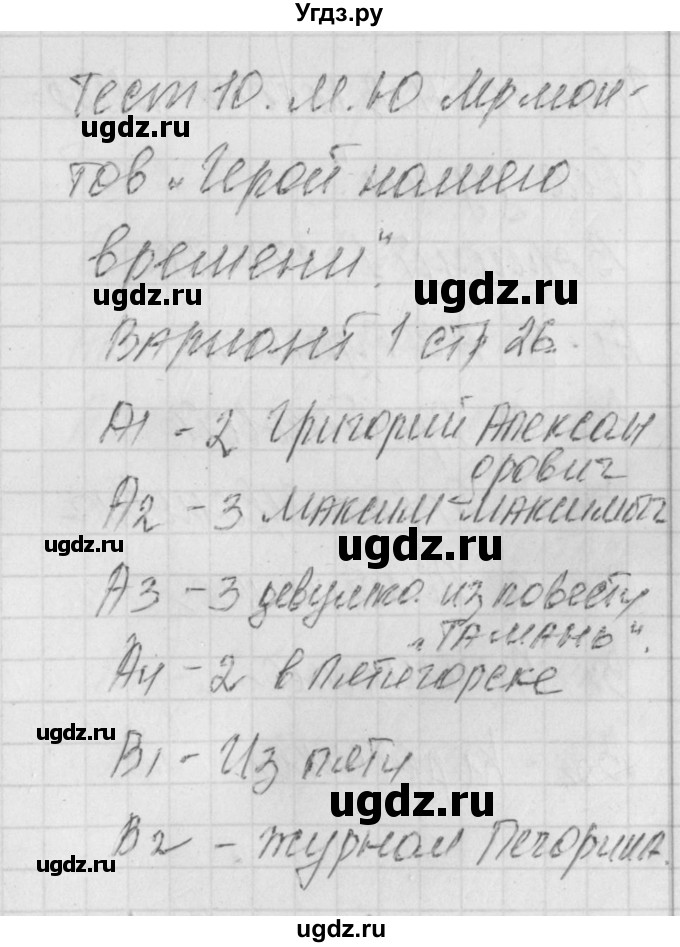 Угдз.ру
Тест 10. М. Ю Лермон-
тов „Герой нашего
времени".
Вариант 1 стр 26.
А1 - 2 Григорий Александ
рович
А2 - 3 Максим Максимыч
А3 - 3 девушка из повести
„ТАМАНЬ".
А4 - 2 в Пятигорске
В1 - Из пяти
В2 - журнал Печорина.
ugdz.ru
ugdz.ru
ugdz.ru
ugdz.ru
ugdz.ru
ugdz.ru
ugdz.ru
ugdz.ru
ugdz.ru
ugdz.ru
ugdz.ru
ugdz.ru